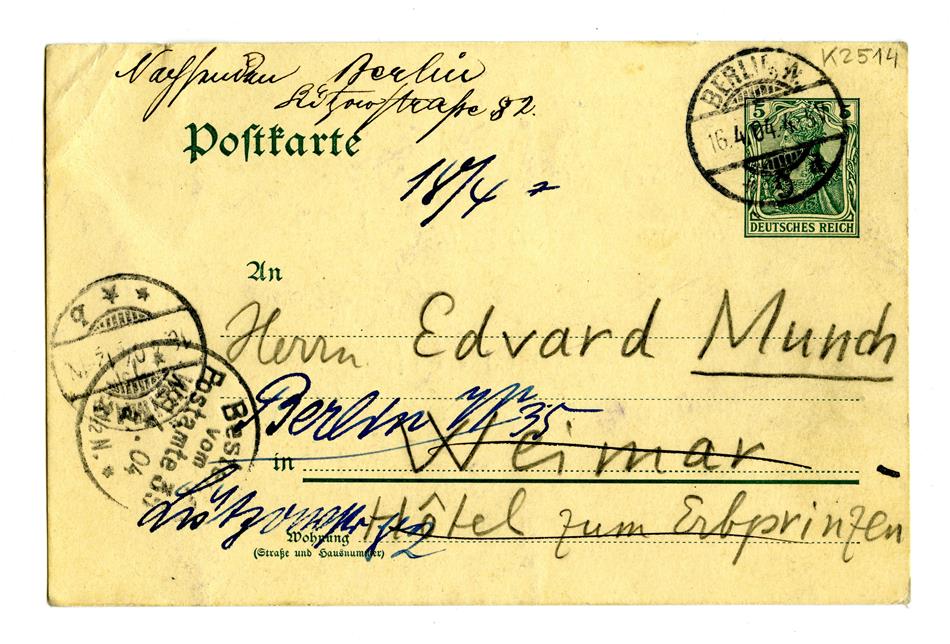 Nachsenden Berlin
Lützowstraße 82.
K2514
Postkarte
BERLIN
16.4.04.4
5 5
DEUTSCHES REICH
18/4
An
Herrn Edvard Munch
Berlin W 35
in Weimar
Bestellt
vom
Postamte 35
04
½ N.
Lützowstr 82
Hôtel zum Erbprinzen
Wohnung
(Straße und Hausnummer)